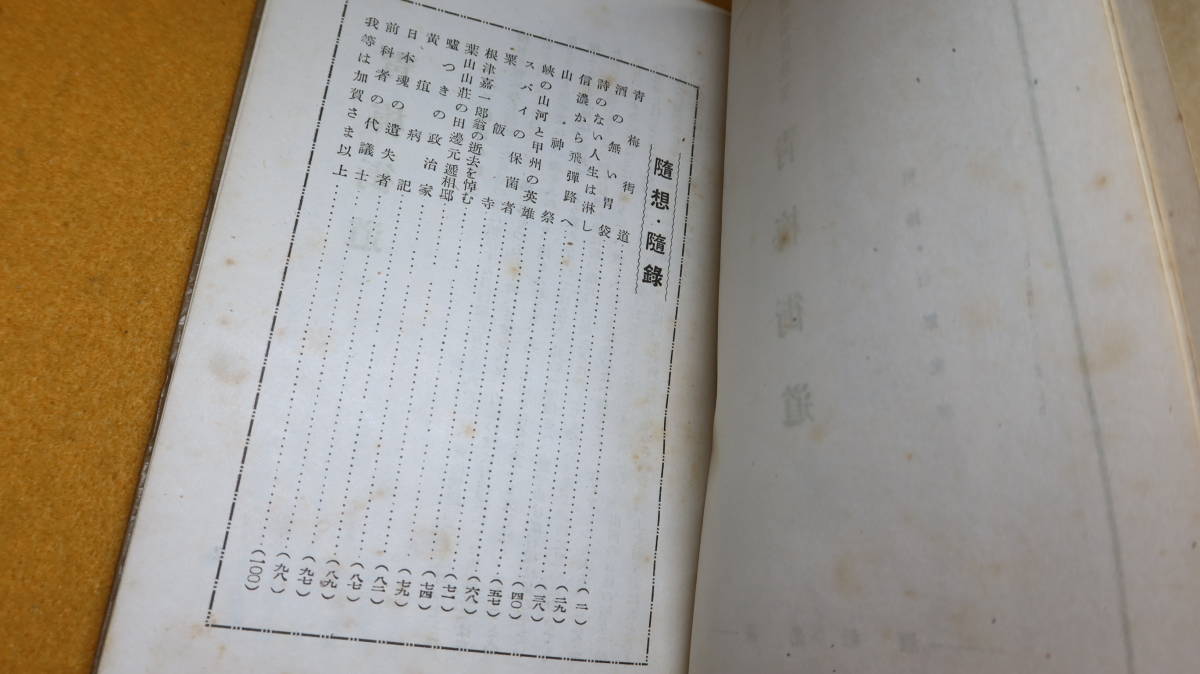 隨想・隨錄
青梅街道(一)
酒の無い胃袋(二九)
詩のない人生は淋し(三八)
信濃から飛彈路へ(四〇)
山神祭(五七)
峽の山河と甲州の英雄(六八)
スパイの保菌者(七一)
粟飯寺(七四)
根津嘉一郎翁の逝去を悼む(七九)
葉山山莊の田邊元遞相邸(八二)
噓つきの政治家(八七)
黃疸病記(八九)
日本魂の遺失者(九七)
前科者の代議士(九八)
我等は加賀さま以上(一〇〇)